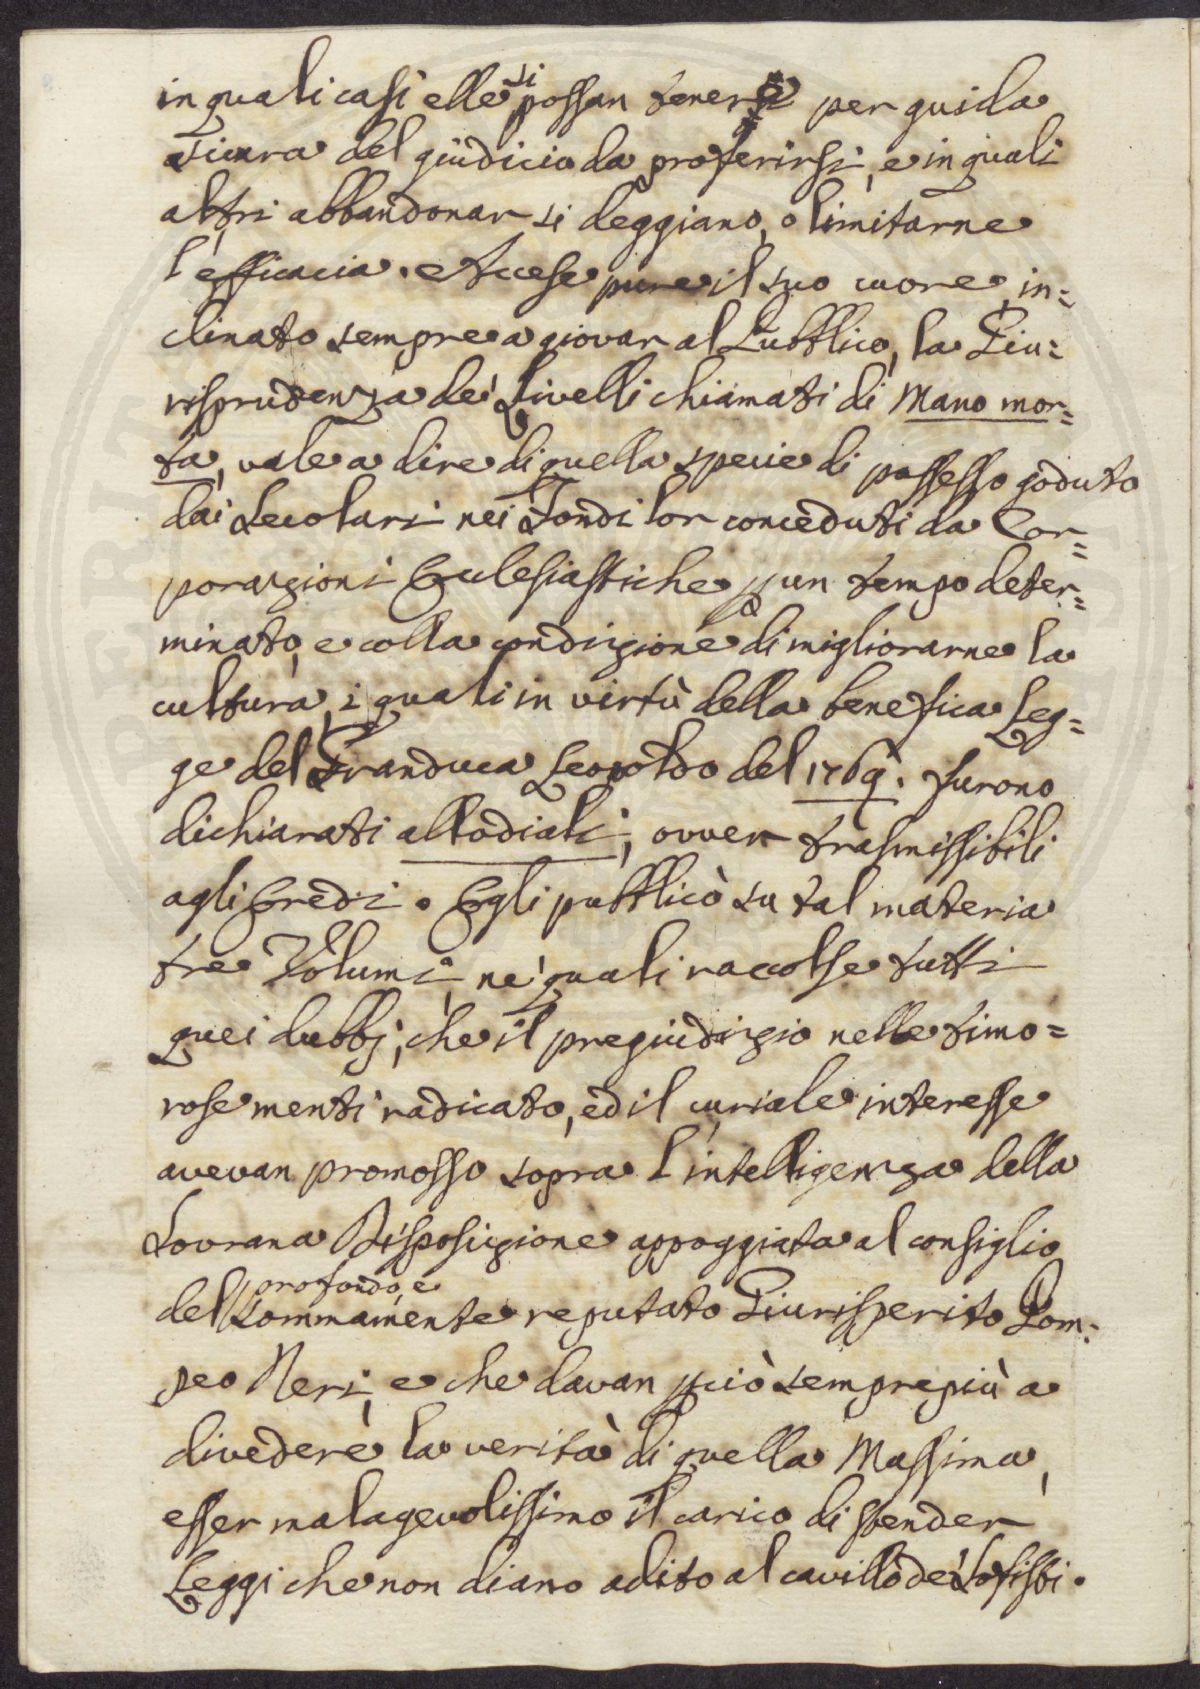 in quali casi elle si possan tener per guida
sicura del giudicio da proferirsi, e in quali
altri abbandonar si deggiano, o limitarne
l'efficacia. Accese pure il suo cuore, in=
clinato sempre a giovar al Pubblico, la Giu=
risprudenza de' Livelli chiamati di Mano mor=
ta, vale a dire di quella specie di possesso goduto
dai Secolari nei Fondi lor conceduti da Cor=
porazioni Ecclesiastiche p un tempo deter=
minato, e colla condizione di migliorarne la
cultura, i quali in virtù della benefica Leg=
ge del Granduca Leopoldo del 1769. furono
dichiarati allodiali, ovver trasmissibili
agli Eredi. Egli pubblicò su tal materia
tre Volumi, ne' quali raccolse tutti
quei dubbj, che il pregiudizio nelle timo=
rose menti radicato, ed il curiale interesse
avevan promosso sopra l'intelligenza della
Sovrana Disposizione appoggiata al consiglio
del profondo, e sommamente reputato Giurisperito Pom=
peo Neri, e che davan p ciò sempre più a
divedere la verità di quella Massima,
esser malagevolissimo il carico di stender
Leggi che non diano adito al cavillo de' Sofisti.